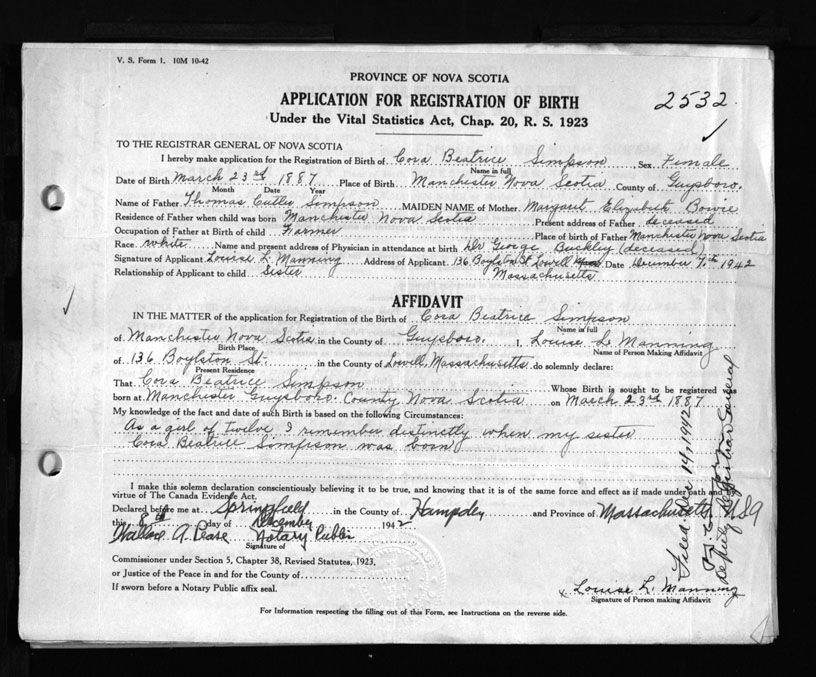 V. S. Form 1. 10M 10-42
PROVINCE OF NOVA SCOTIA
APPLICATION FOR REGISTRATION OF BIRTH
2532
Under the Vital Statistics Act, Chap. 20, R. S. 1923
TO THE REGISTRAR GENERAL OF NOVA SCOTIA
I hereby make application for the Registration of Birth of Cora Beatrice Simpson, Sex Female
Name in full
Date of Birth March 23rd 1887 Place of Birth Manchester Nova Scotia County of Guysboro.
Month Date Year
Name of Father Thomas Cutler Simpson MAIDEN NAME of Mother Margaret Elizabeth Bowie
Residence of Father when child was born Manchester Nova Scotia Present address of Father deceased
Occupation of Father at Birth of child Farmer Place of birth of Father Manchester Nova Scotia
Race white Name and present address of Physician in attendance at birth Dr George Buckley (deceased)
Signature of Applicant Louise L. Manning Address of Applicant 136 Boylston St Lowell Date December 7th 1942
Relationship of Applicant to child Sister Massachusetts
AFFIDAVIT
IN THE MATTER of the application for Registration of the Birth of Cora Beatrice Simpson
Name in full
of Manchester Nova Scotia in the County of Guysboro. I, Louise L. Manning
Birth Place Name of Person Making Affidavit
of 136 Boylston St. in the County of Lowell, Massachusetts do solemnly declare:
Present Residence
That Cora Beatrice Simpson Whose Birth is sought to be registered
born at Manchester Guysboro County Nova Scotia on March 23rd 1887
My knowledge of the fact and date of such Birth is based on the following Circumstances:
As a girl of twelve I remember distinctly when my sister
Cora Beatrice Simpson was born
I make this solemn declaration conscientiously believing it to be true, and knowing that it is of the same force and effect as if made under oath and by
virtue of The Canada Evidence Act.
Declared before me at Springfield in the County of Hampden and Province of Massachusetts USA
this 8th day of December 1942
Wallace A. Pease Notary Public
Signature of
Commissioner under Section 5, Chapter 38, Revised Statutes, 1923,
or Justice of the Peace in and for the County of
If sworn before a Notary Public affix seal.
x Louise L. Manning
Signature of Person making Affidavit
For Information respecting the filling out of this Form, see Instructions on the reverse side.
Filed Dec 14, 1942
Deputy Registrar General